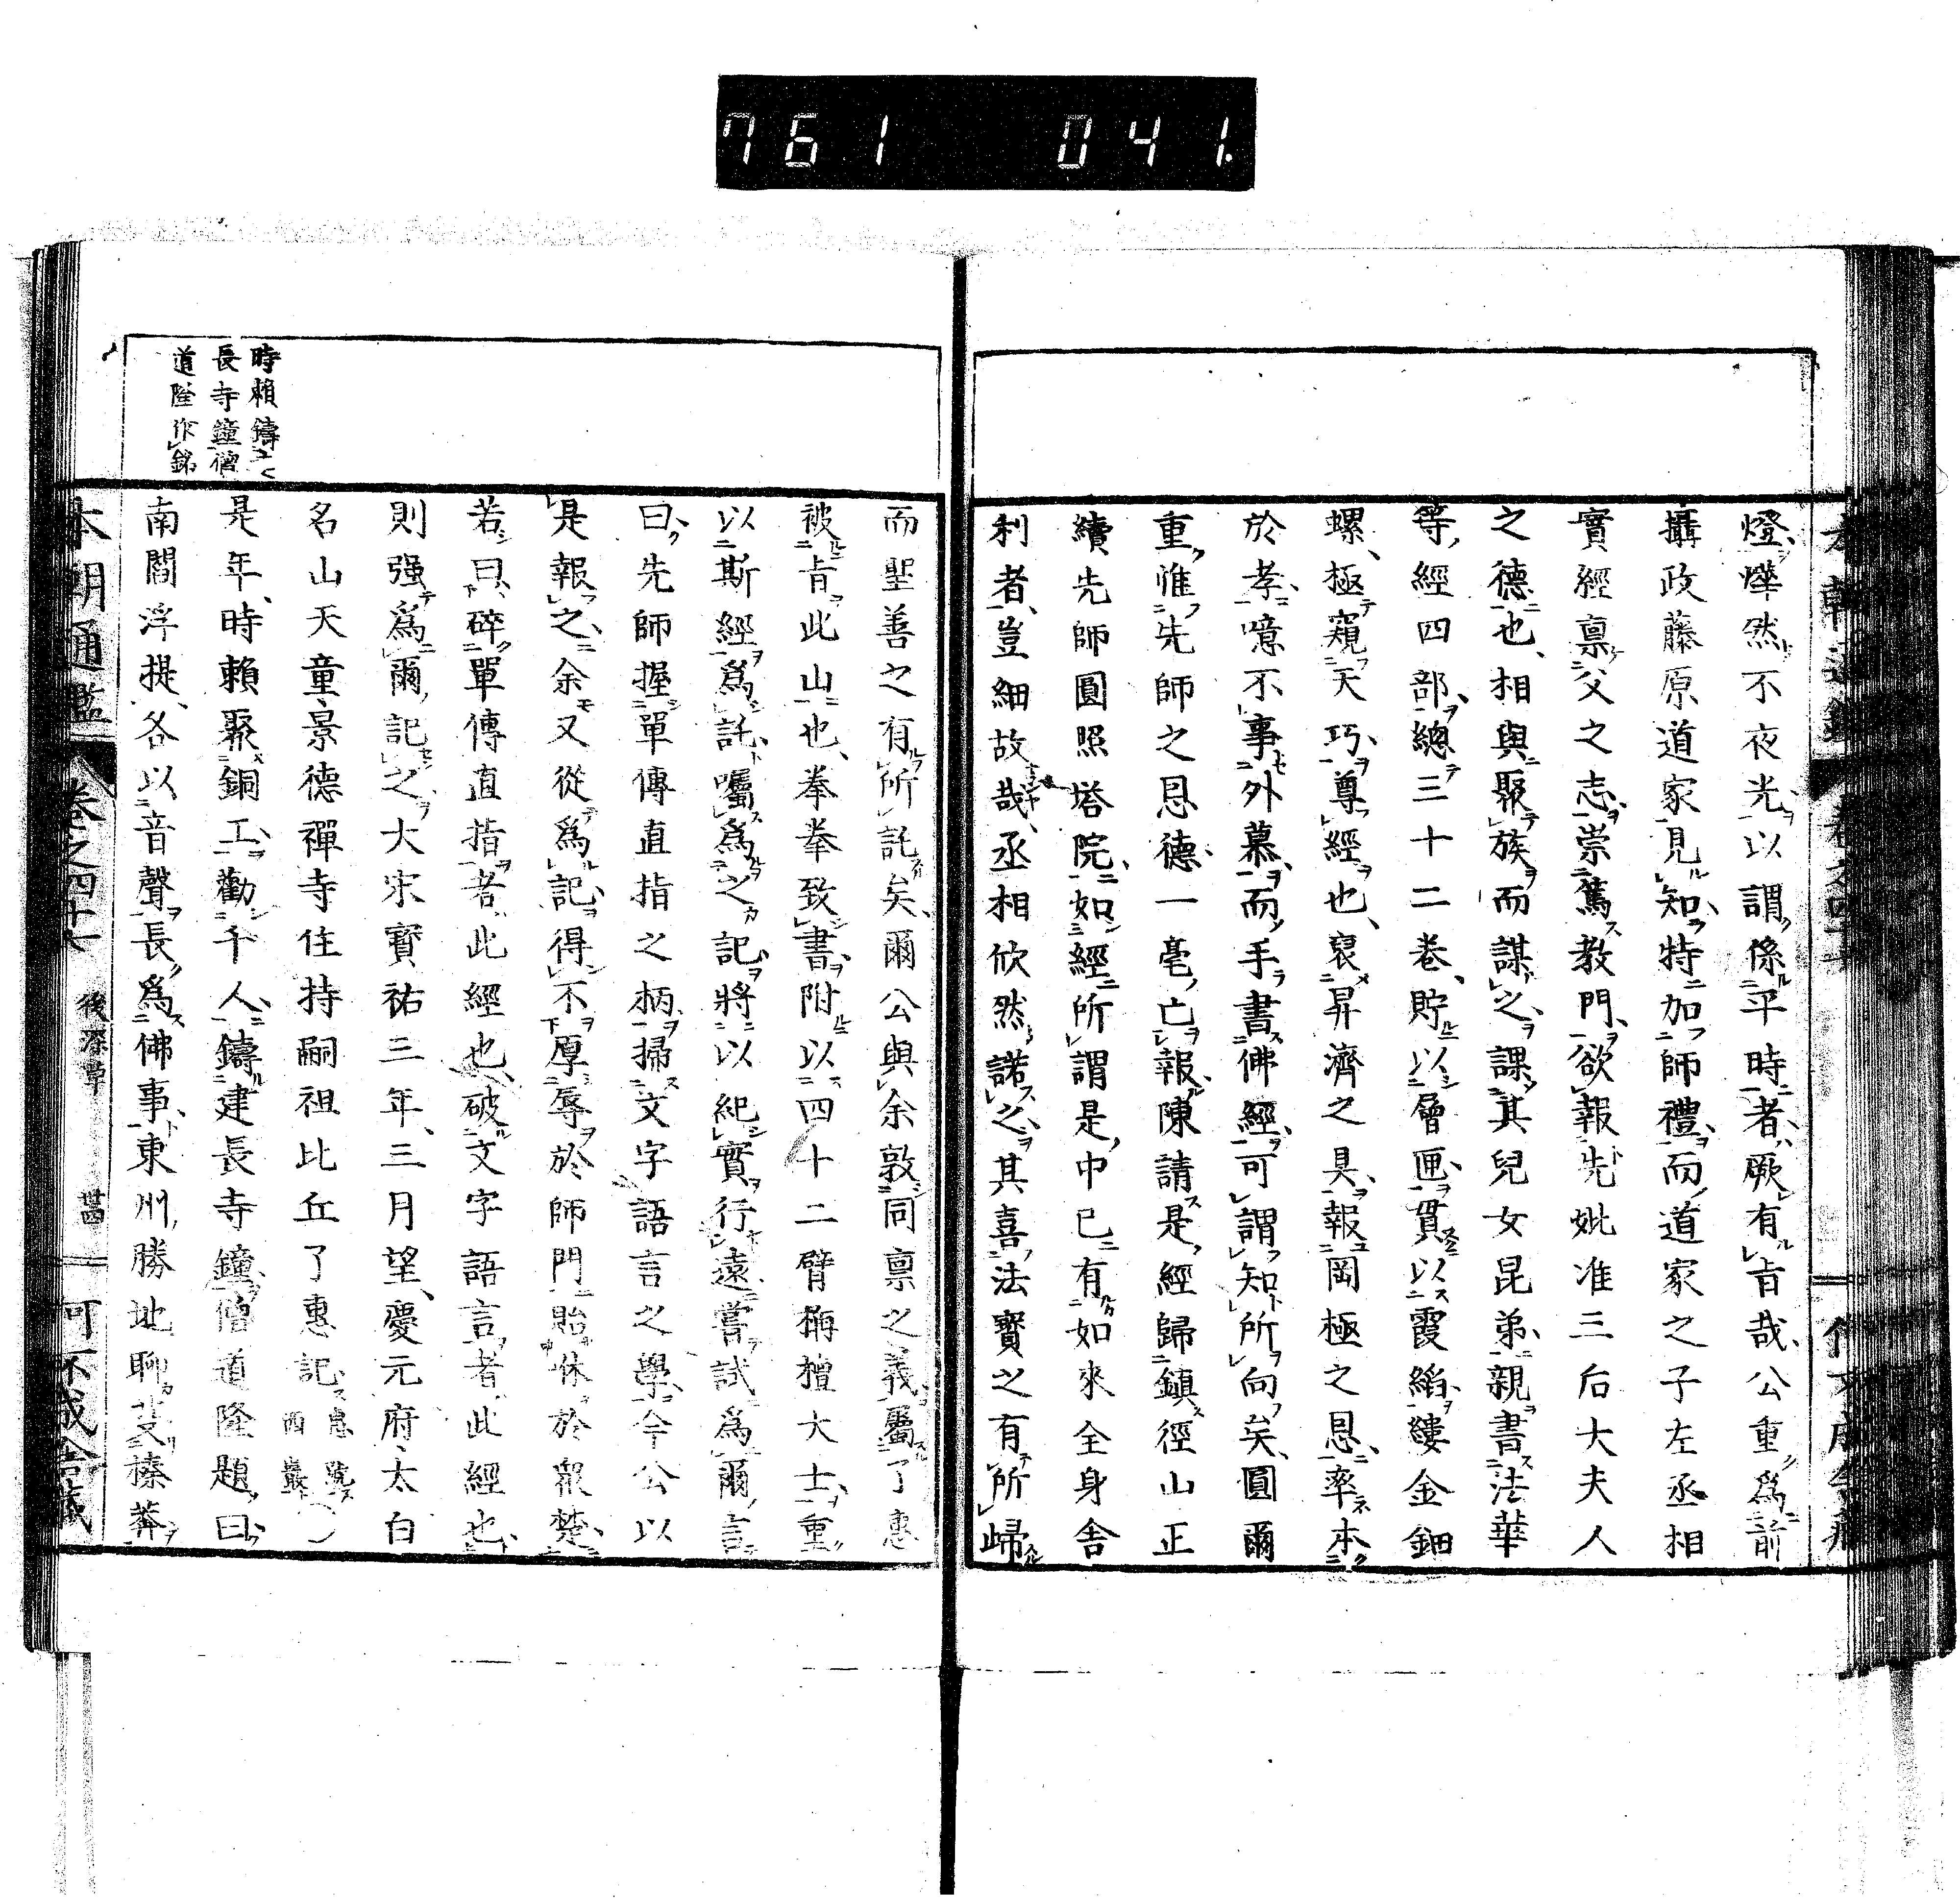 761 041.
燈燁然不夜光以謂係平時者厥有旨哉公重爲前
攝政藤原道家見知特加師禮而道家之子左丞相
實經禀父之志崇篤教門欲報先妣准三后大夫人
之德也相與聚族而謀之課其兒女昆弟親書法華
等經四部總三十二卷貯以層匣貫以霞縚縷金鈿
螺極窺天巧尊經也裒昇濟之具報罔極之恩率本
於孝噫不事外慕而手書佛經可謂知所向矣圓爾
重惟先師之恩德一毫亡報陳請是經歸鎮徑山正
續先師圓照塔院如經所謂是中已有如來全身舍
利者豈細故哉丞相欣然諾之其喜法寶之有所歸
時賴鑄
長寺鐘僧
道隆作銘
而聖善之有所託矣爾公與余敦同禀之義屬了惠
被旨此山也拳拳致書附以四十二臂栴檀大士重
以斯經爲託囑爲之記將以紀實行遠嘗試爲爾言
曰先師握單傳直指之柄掃文字語言之學今公以
是報之余又從爲記得不厚辱於師門貽休於衆楚
若曰碎單傳直指者此經也破文字語言者此經也
則强爲爾記之大宋寳祐三年三月望慶元府太白
名山天童景德禪寺住持嗣祖比丘了惠記 惠號西巖
是年時賴聚銅工勸千人鑄建長寺鐘僧道隆題曰
南閻浮提各以音聲長爲佛事東州勝地聊芟榛莽
本朝通鑑 卷之四十 後深草